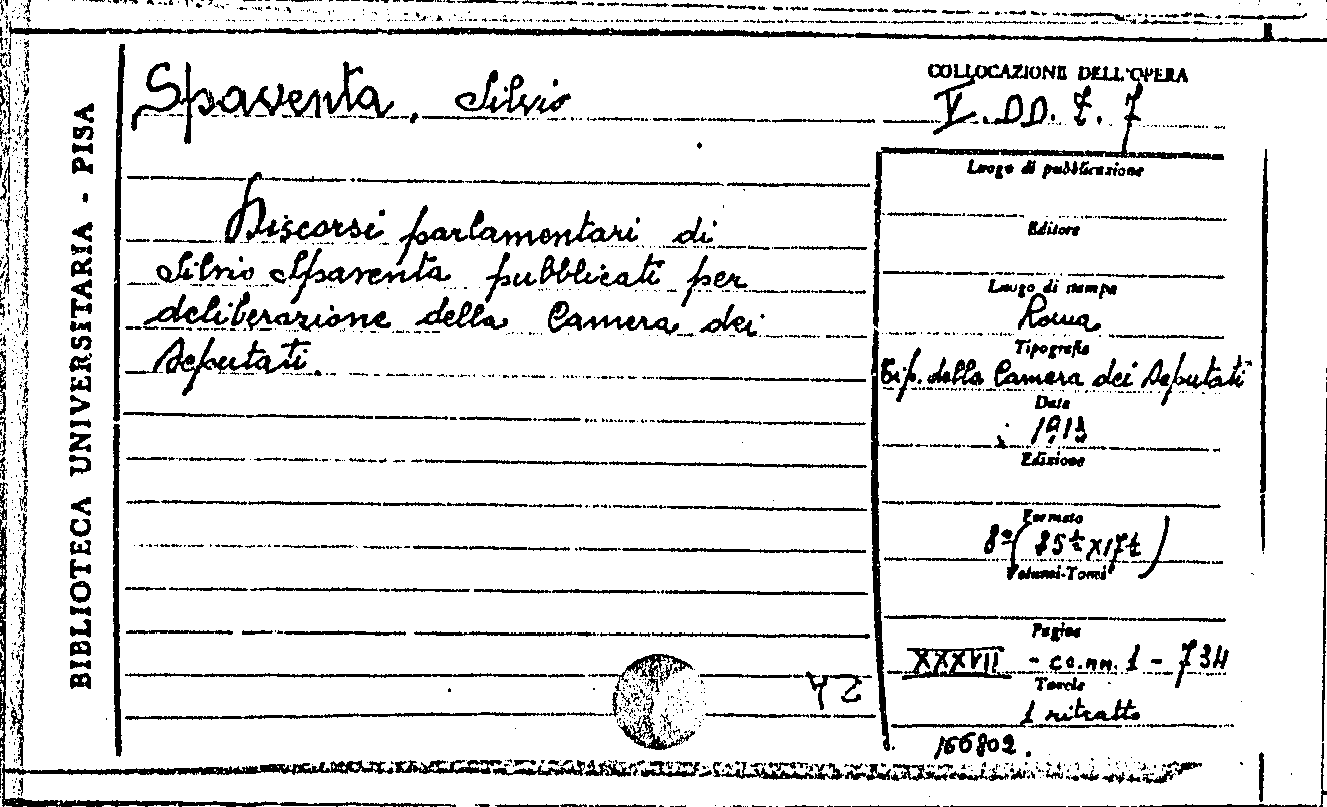 BIBLIOTECA UNIVERSITARIA - PISA
Spaventa, Silvio
Discorsi parlamentari di
Silvio Spaventa pubblicati per
deliberazione della Camera dei
Deputati.
COLLOCAZIONE DELL'OPERA
V. DD. 7. 7
Luogo di pubblicazione
Editore
Luogo di stampa
Roma
Tipografia
Tip. della Camera dei Deputati
Data
1913
Edizione
Formato
8º
Volumi-Tomi
Pagine
XXXVII - 1 - 734
Tavole
1 ritratto
166802.